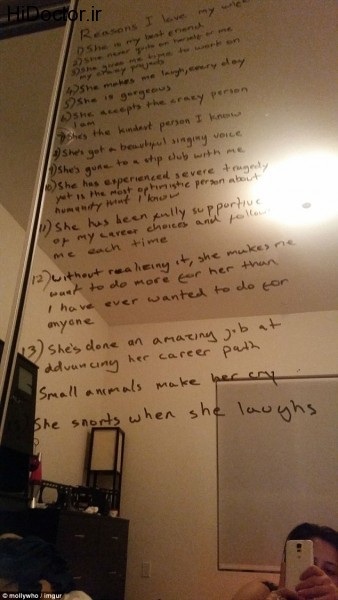 HiDoctor.ir
Reasons I love my wife
1) She is my best friend
2) She never quits on herself or me
3) She gives me time to work on
my crazy projects
4) She makes me laugh, every day
5) She is gorgeous
6) She accepts the crazy person
I am
7) She's the kindest person I know
8) She's got a beautiful singing voice
9) She's gone to a stip club with me
10) She has experienced severe tragedy
yet is the most optimistic person about
humanity that I know
11) She has been fully supportive
of my career choices and follow
me each time
12) Without realizing it, she makes me
want to do more for her than
I have ever wanted to do for
anyone
13) She's done an amazing job at
advancing her career path
Small animals make her cry
She snorts when she laughs
© mollywho / imgur